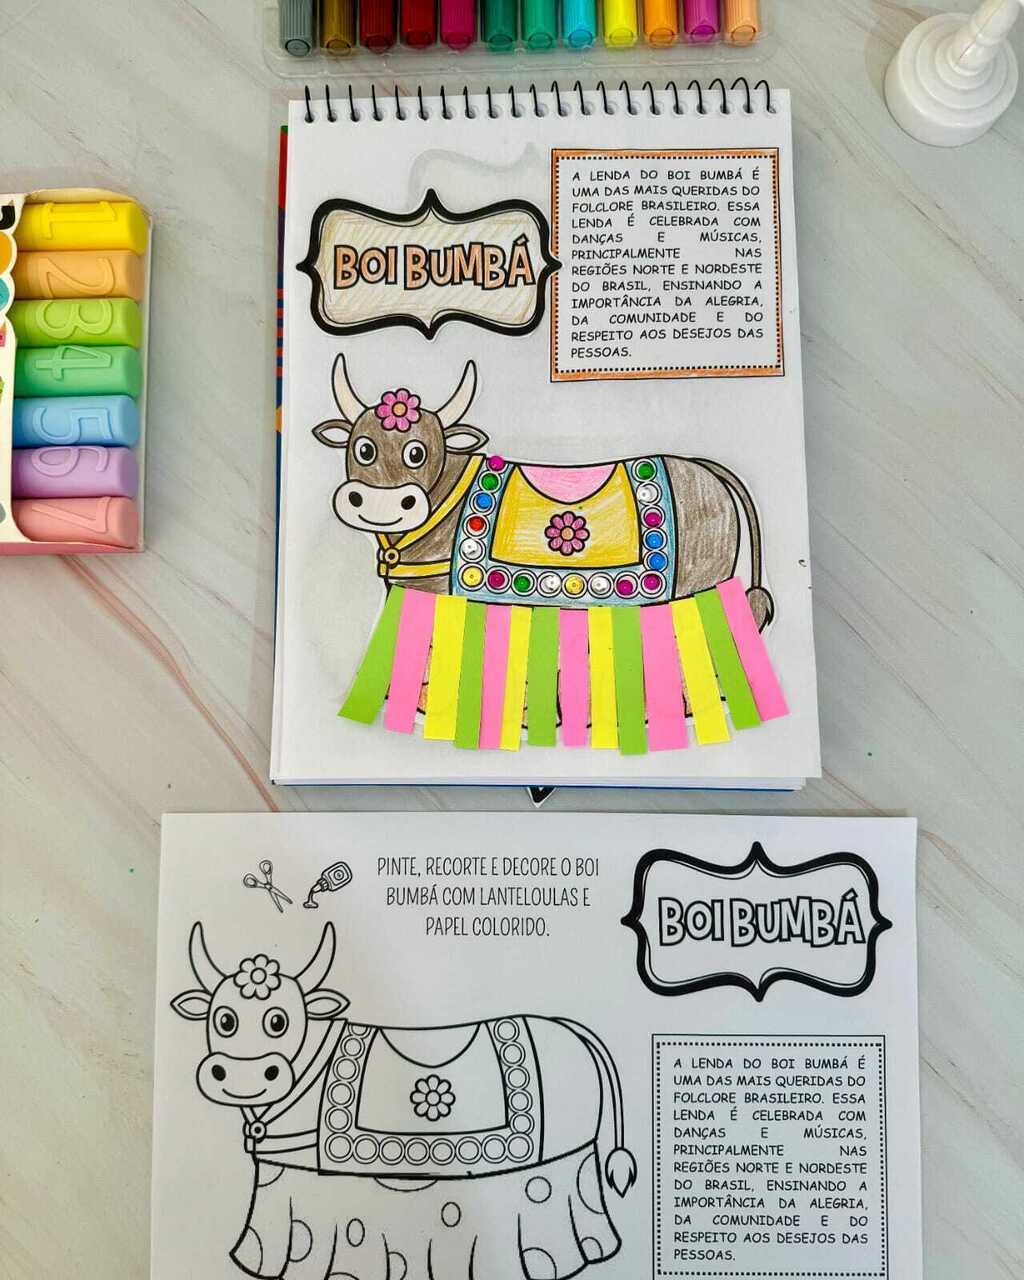 BOI BUMBÁ
A LENDA DO BOI BUMBÁ É
UMA DAS MAIS QUERIDAS DO
FOLCLORE BRASILEIRO. ESSA
LENDA É CELEBRADA COM
DANÇAS E MÚSICAS,
PRINCIPALMENTE NAS
REGIÕES NORTE E NORDESTE
DO BRASIL, ENSINANDO A
IMPORTÂNCIA DA ALEGRIA,
DA COMUNIDADE E DO
RESPEITO AOS DESEJOS DAS
PESSOAS.
1
2
3
4
5
6
7
PINTE, RECORTE E DECORE O BOI
BUMBÁ COM LANTELOULAS E
PAPEL COLORIDO.
BOI BUMBÁ
A LENDA DO BOI BUMBÁ É
UMA DAS MAIS QUERIDAS DO
FOLCLORE BRASILEIRO. ESSA
LENDA É CELEBRADA COM
DANÇAS E MÚSICAS,
PRINCIPALMENTE NAS
REGIÕES NORTE E NORDESTE
DO BRASIL, ENSINANDO A
IMPORTÂNCIA DA ALEGRIA,
DA COMUNIDADE E DO
RESPEITO AOS DESEJOS DAS
PESSOAS.